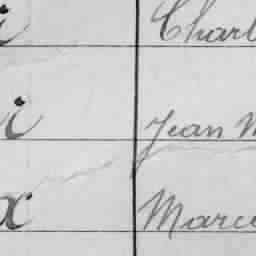 i Charl
i Jean M
x Marce